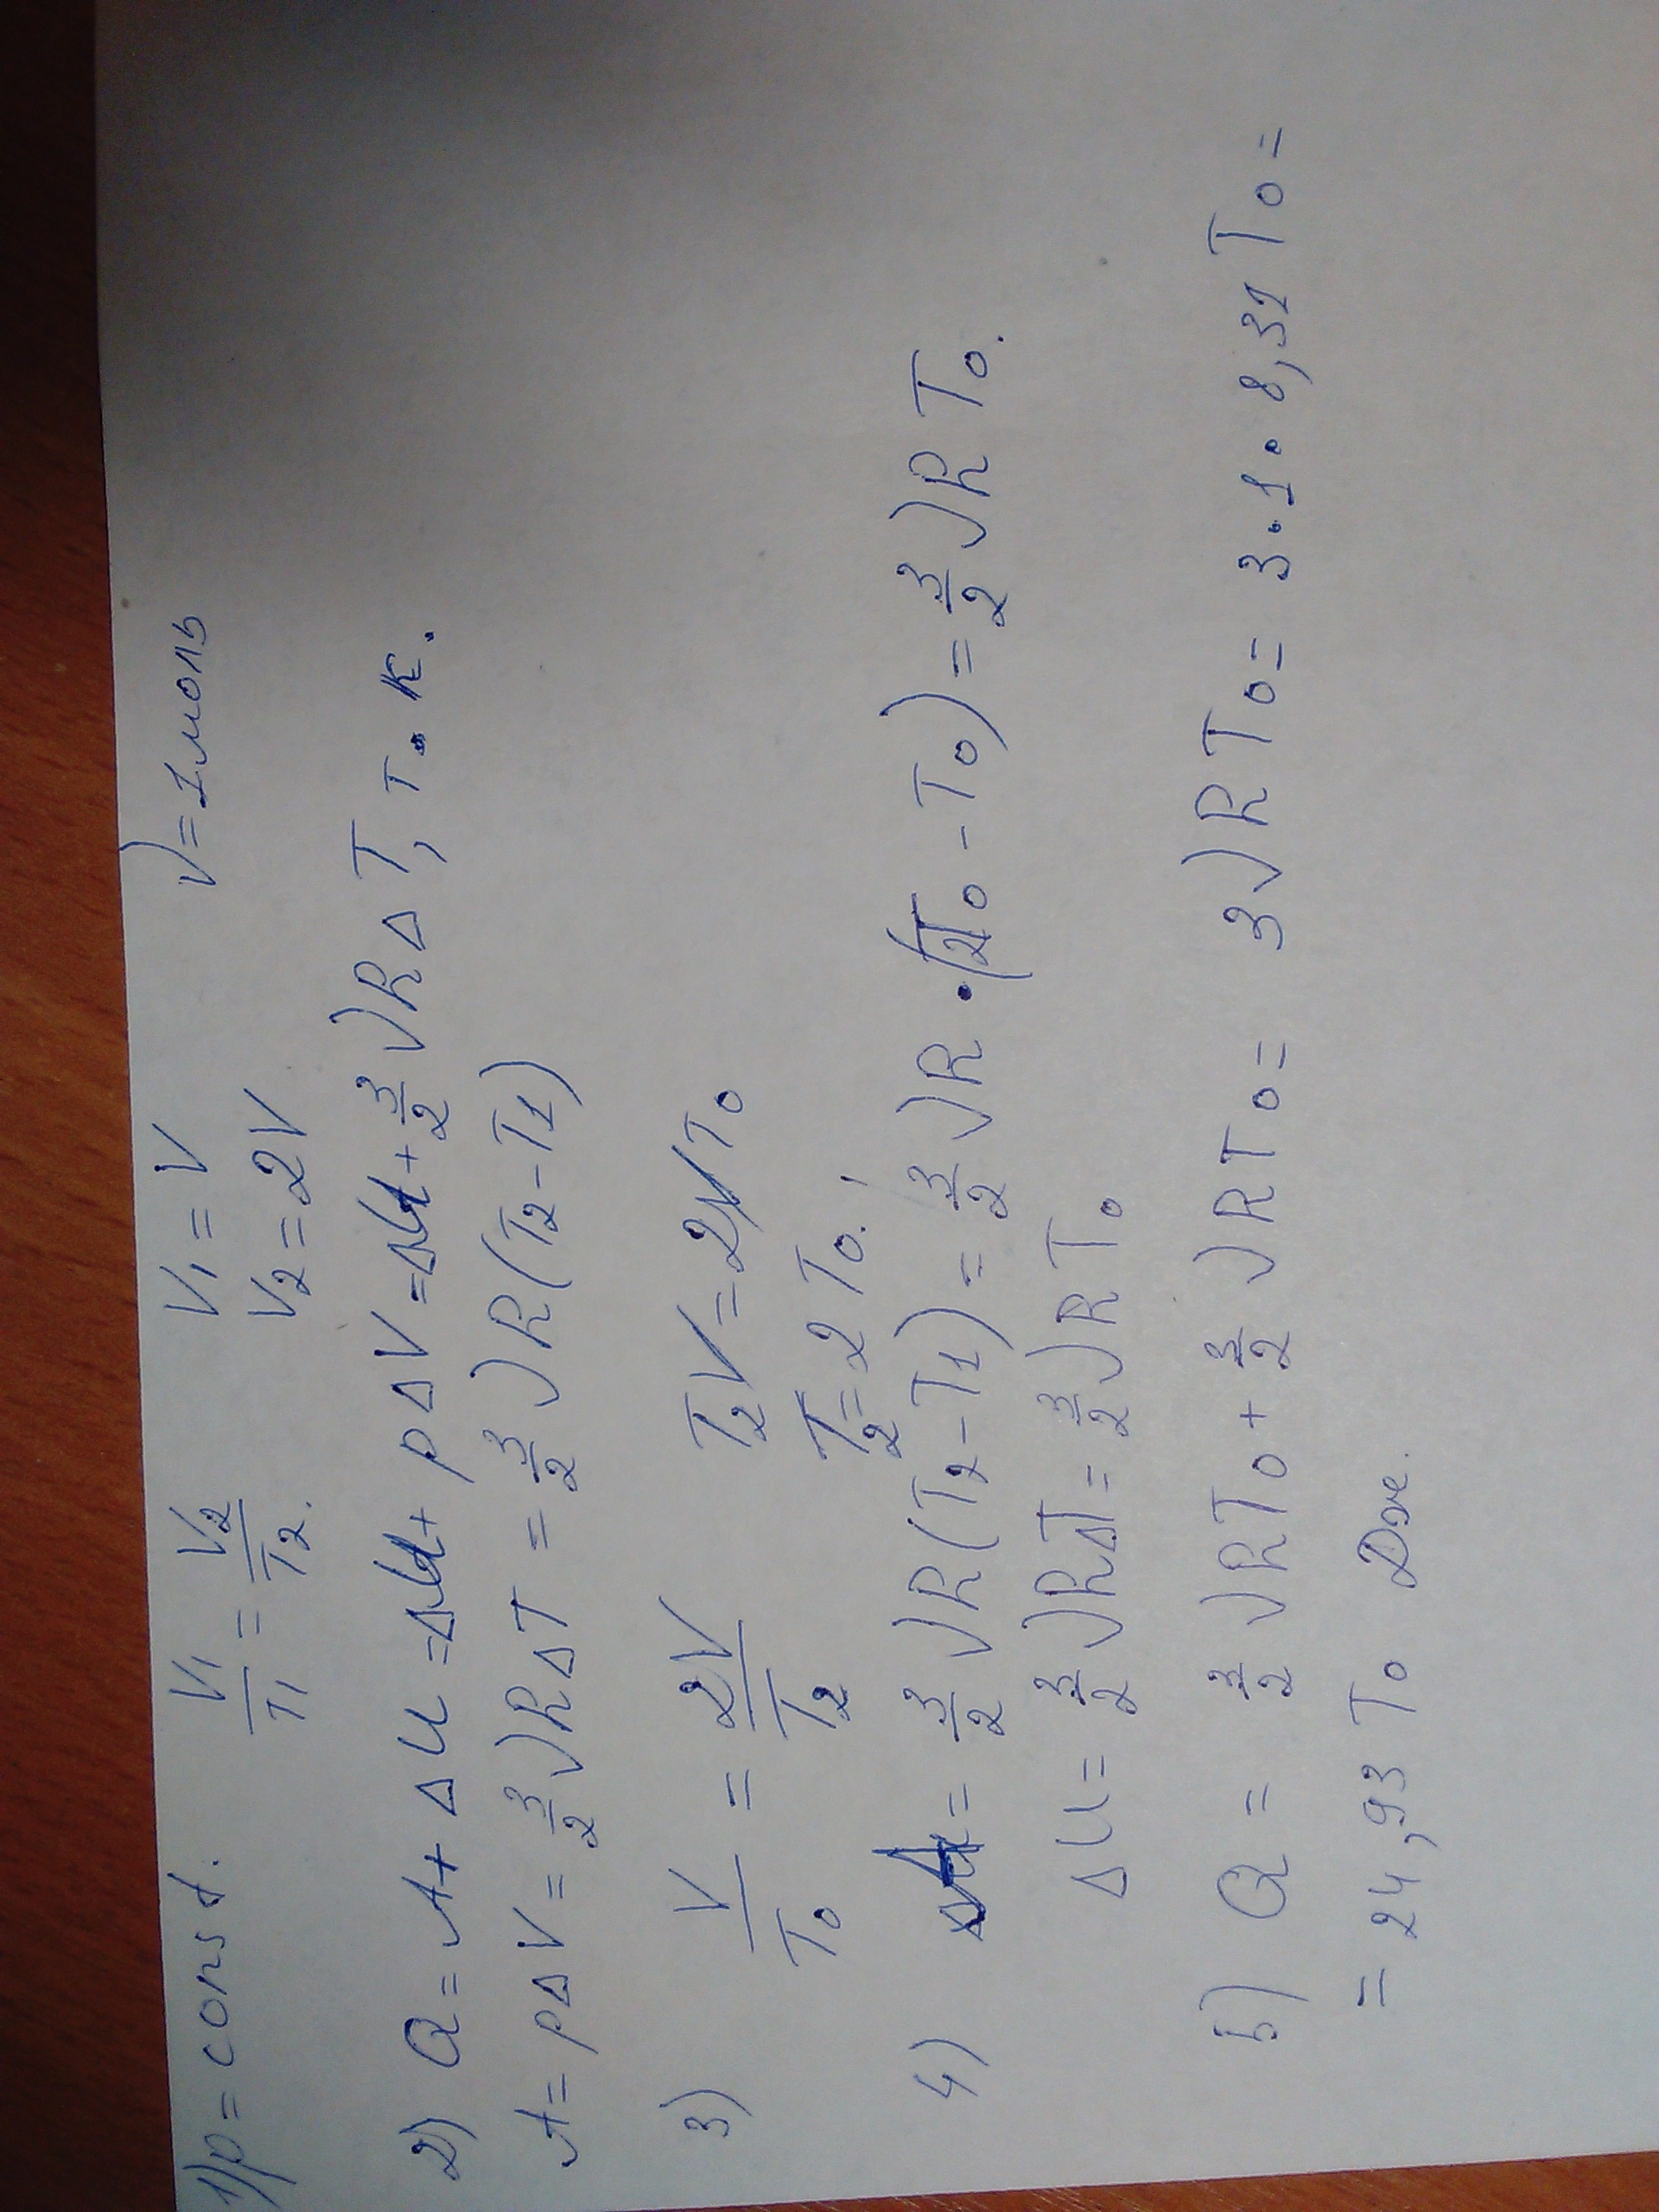 1) p = const. V₁/T₁ = V₂/T₂. V₁ = V ν = 1 моль
V₂ = 2V
2) Q = A + ΔU = ΔU + pΔV = ΔU + 3/2 νRΔT, т.к.
A = pΔV = 3/2 νRΔT = 3/2 νR(T₂ - T₁)
3) V/T₀ = 2V/T₂ T₂V = 2VT₀
T₂ = 2T₀.
4) A = 3/2 νR(T₂ - T₁) = 3/2 νR · (2T₀ - T₀) = 3/2 νRT₀.
ΔU = 3/2 νRΔT = 3/2 νRT₀
5) Q = 3/2 νRT₀ + 3/2 νRT₀ = 3νRT₀ = 3 · 1 · 8,31 T₀ =
= 24,93 T₀ Дж.